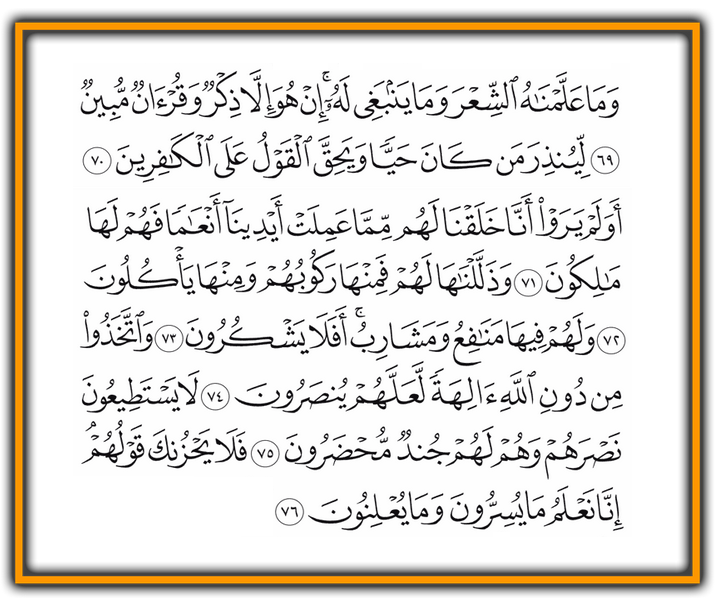 وَمَا عَلَّمْنَٰهُ ٱلشِّعْرَ وَمَا يَنۢبَغِى لَهُۥٓ ۚ إِنْ هُوَ إِلَّا ذِكْرٌ وَقُرْءَانٌ مُّبِينٌ
٦٩ لِّيُنذِرَ مَن كَانَ حَيًّا وَيَحِقَّ ٱلْقَوْلُ عَلَى ٱلْكَٰفِرِينَ ٧٠
أَوَلَمْ يَرَوْا۟ أَنَّا خَلَقْنَا لَهُم مِّمَّا عَمِلَتْ أَيْدِينَآ أَنْعَٰمًا فَهُمْ لَهَا
مَٰلِكُونَ ٧١ وَذَلَّلْنَٰهَا لَهُمْ فَمِنْهَا رَكُوبُهُمْ وَمِنْهَا يَأْكُلُونَ
٧٢ وَلَهُمْ فِيهَا مَنَٰفِعُ وَمَشَارِبُ ۚ أَفَلَا يَشْكُرُونَ ٧٣ وَٱتَّخَذُوا۟
مِن دُونِ ٱللَّهِ ءَالِهَةً لَّعَلَّهُمْ يُنصَرُونَ ٧٤ لَا يَسْتَطِيعُونَ
نَصْرَهُمْ وَهُمْ لَهُمْ جُندٌ مُّحْضَرُونَ ٧٥ فَلَا يَحْزُنكَ قَوْلُهُمْ ۘ
إِنَّا نَعْلَمُ مَا يُسِرُّونَ وَمَا يُعْلِنُونَ ٧٦